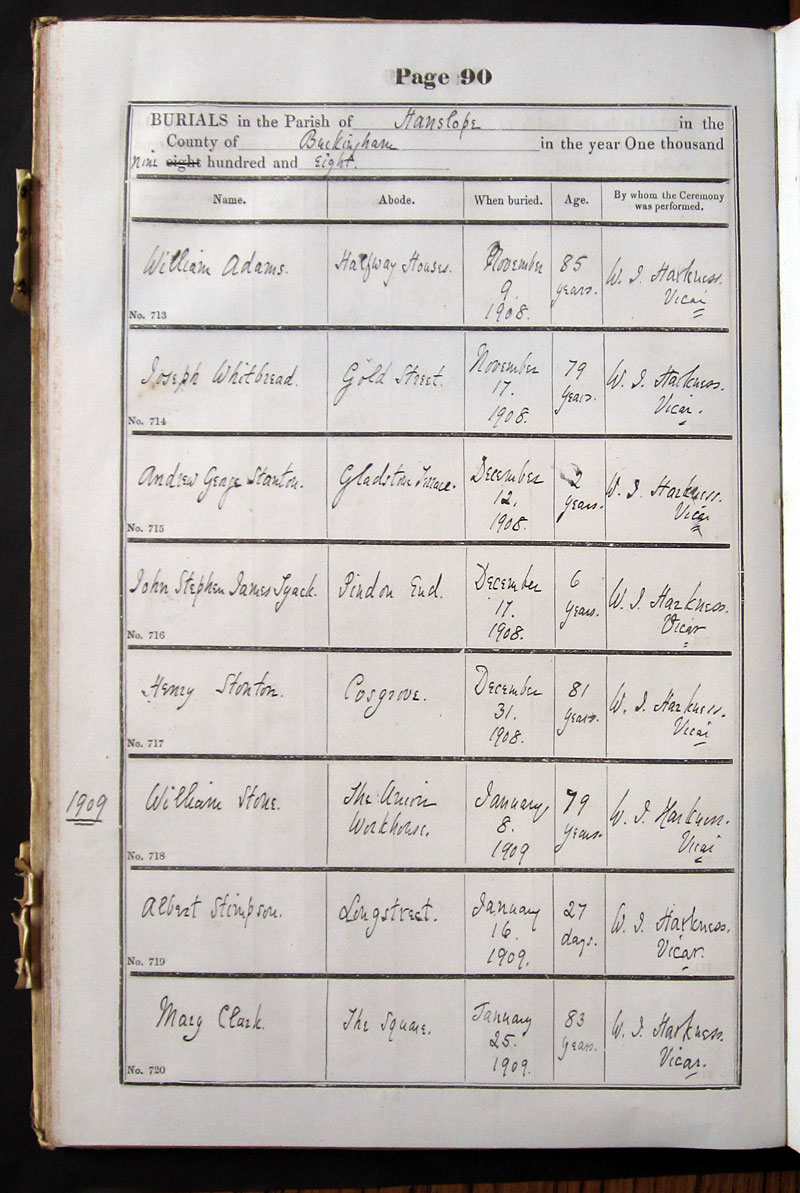 Page 90
BURIALS in the Parish of Hanslope in the
County of Buckingham in the year One thousand
nine eight hundred and Eight.
Name. Abode. When buried. Age. By whom the Ceremony was performed.
William Adams. Halfway Houses. November 85 W. J. Harkness.
9. years. Vicar
No. 713 1908.
Joseph Whitbread. Gold Street. November 79 W. J. Harkness.
17. years. Vicar.
No. 714 1908.
Andrew George Stanton. Gladston Terrace. December 2 W. J. Harkness.
12. years. Vicar
No. 715 1908.
John Stephen James Tyack. Pindon End. December 6 W. J. Harkness.
17. years. Vicar
No. 716 1908.
Henry Stonton. Cosgrove. December 81 W. J. Harkness.
31. years. Vicar
No. 717 1908.
1909 William Stone. The Union January 79 W. J. Harkness.
Workhouse. 8. years. Vicar
No. 718 1909
Albert Stimpson. Longstreet. January 27 W. J. Harkness.
16. days. Vicar.
No. 719 1909.
Mary Clark. The Square. January 83 W. J. Harkness.
25. years. Vicar.
No. 720 1909.